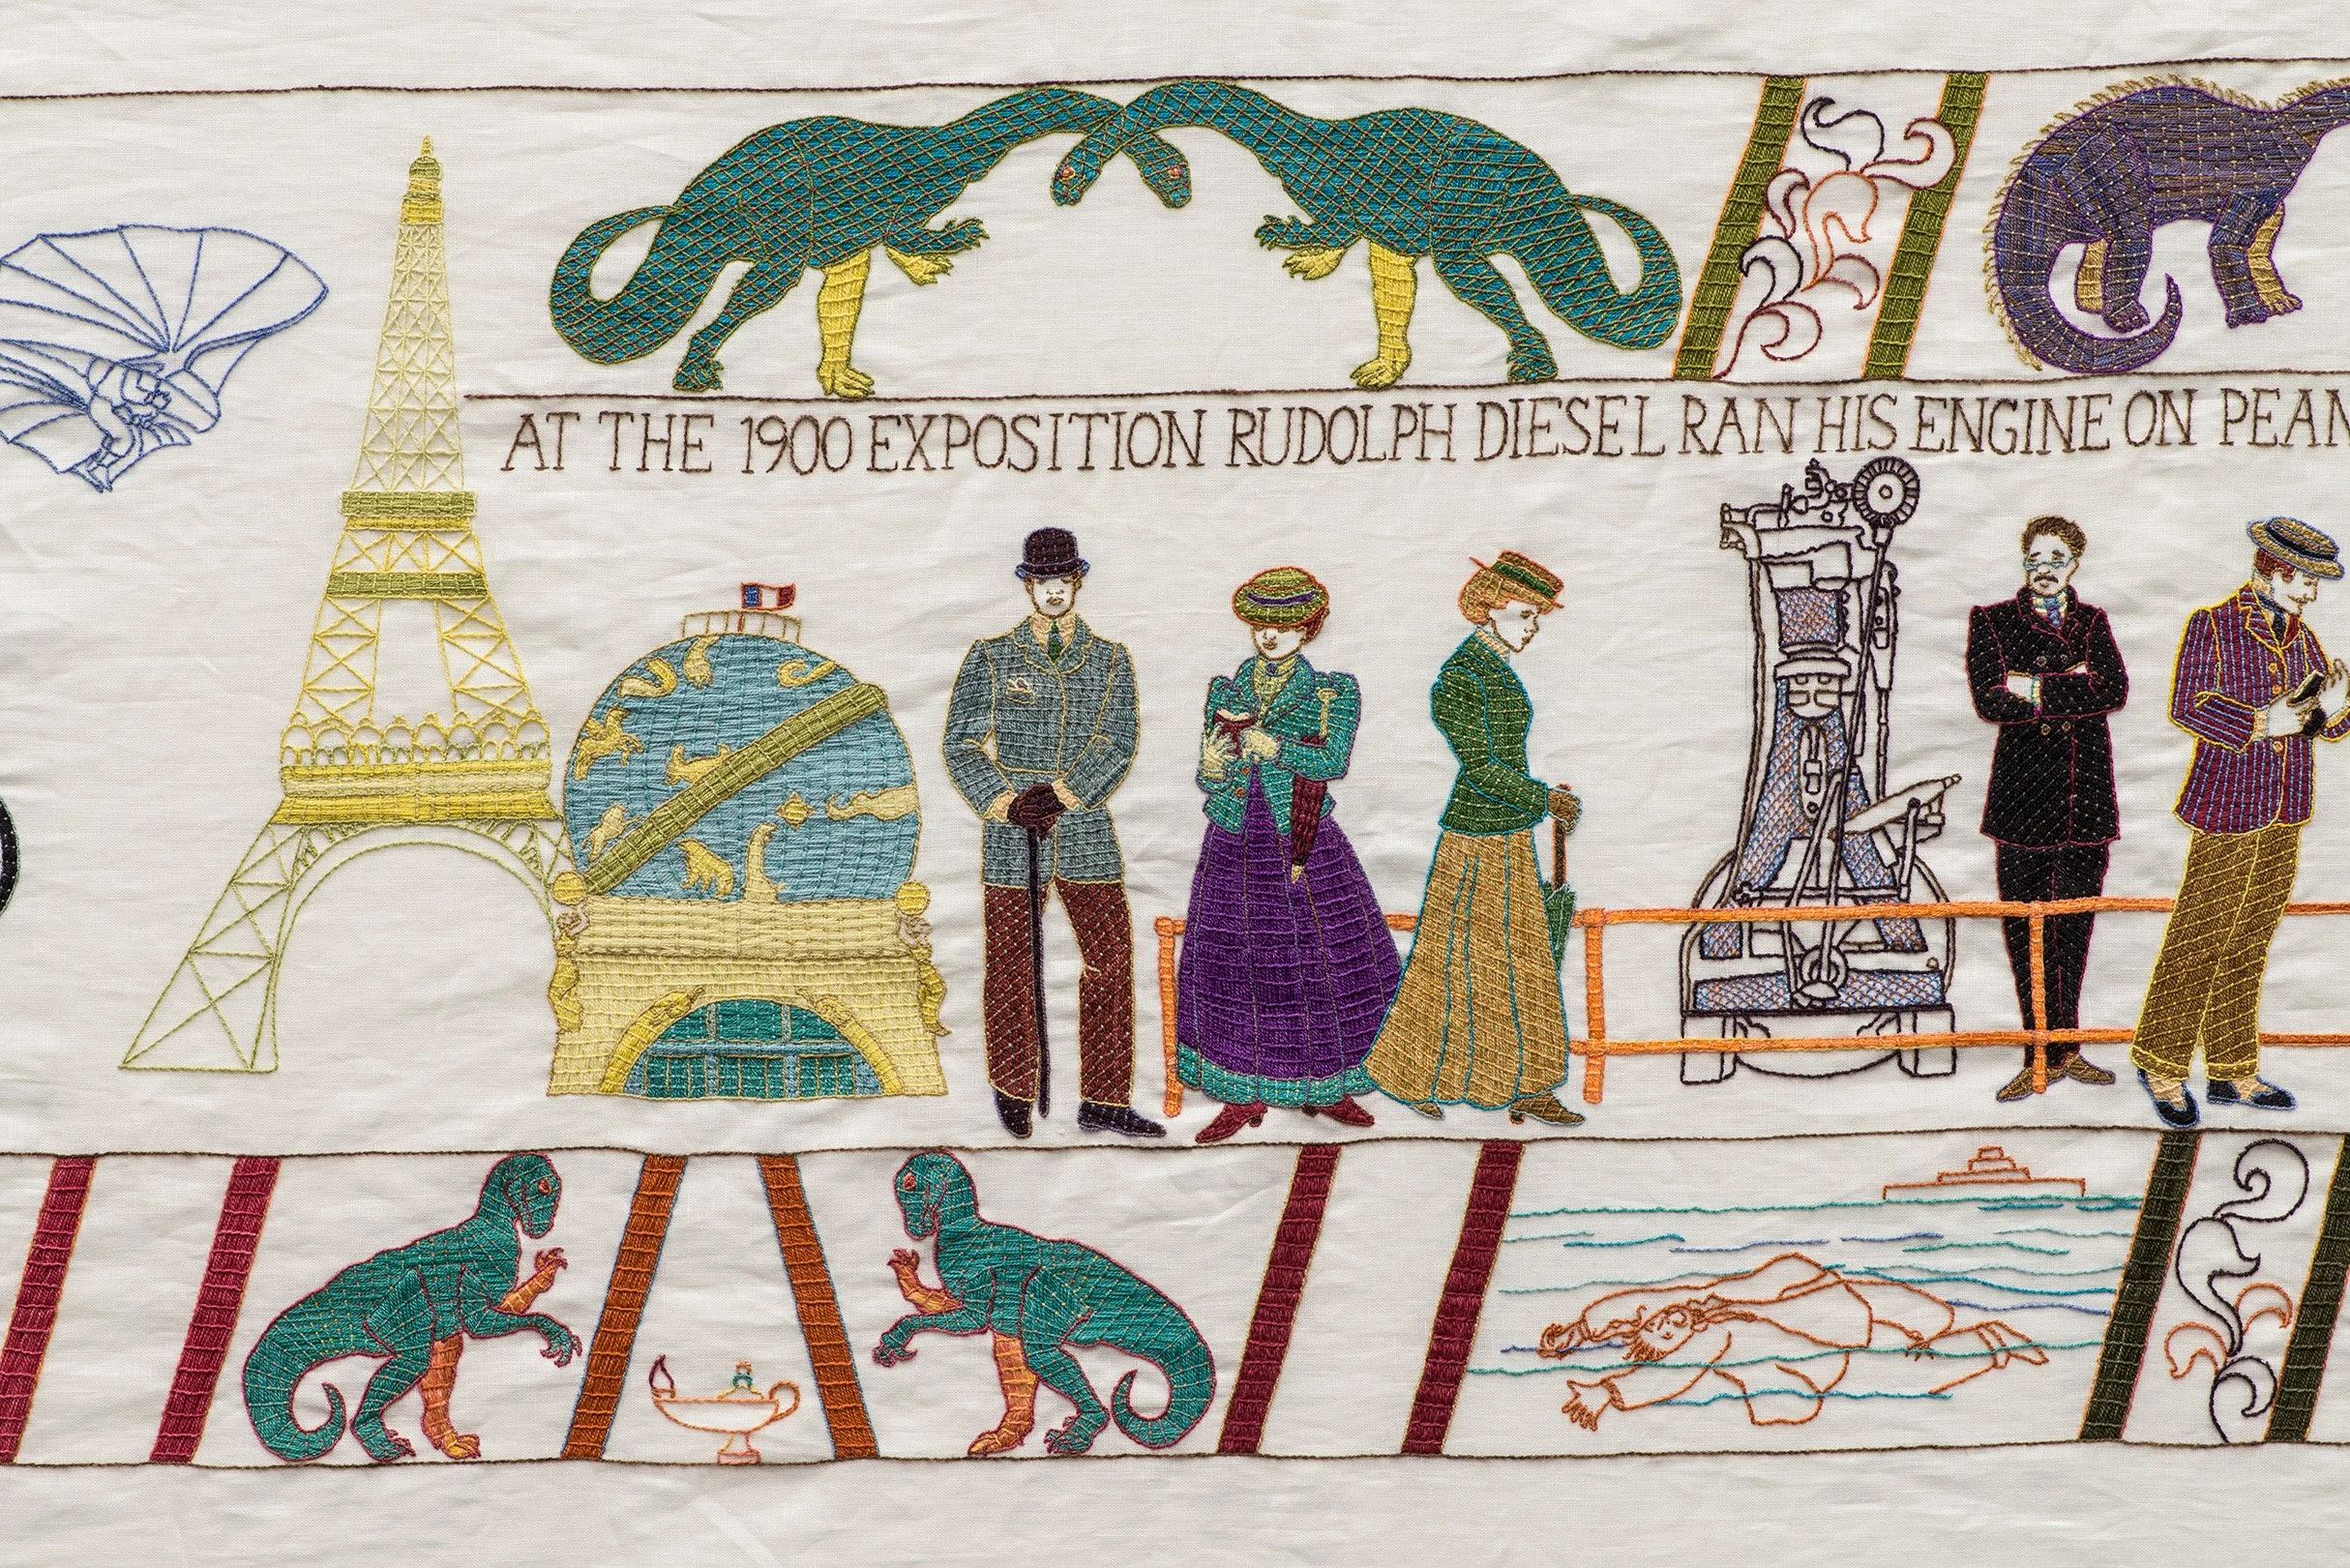 AT THE 1900 EXPOSITION RUDOLPH DIESEL RAN HIS ENGINE ON PEAN